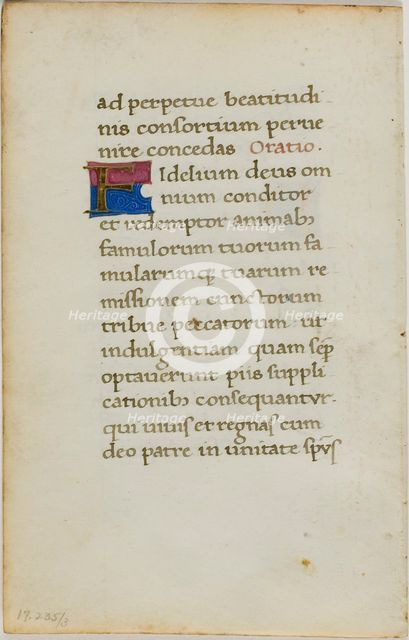 ad perpetue beatitudi
nis consortium perue
nire concedas Oratio.
Fidelium deus om
nium conditor
et redemptor animabꝫ
famulorum tuorum fa
mularumqꝫ tuarum re
missionem cunctorum
tribue peccatorum ut
indulgentiam quam semꝑ
optauerunt piis suppli
cationibꝫ consequantur.
qui uiuis et regnas cum
deo patre in unitate spūs
17.235/3
Heritage Heritage
Heritage Heritage
Heritage Heritage